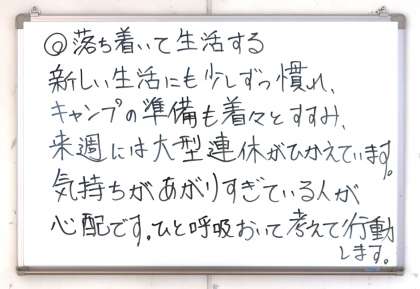 ◎落ち着いて生活する
新しい生活にも少しずつ慣れ、
キャンプの準備も着々とすすみ、
来週には大型連休がひかえています。
気持ちがあがりすぎている人が
心配です。ひと呼吸おいて考えて行動
します。